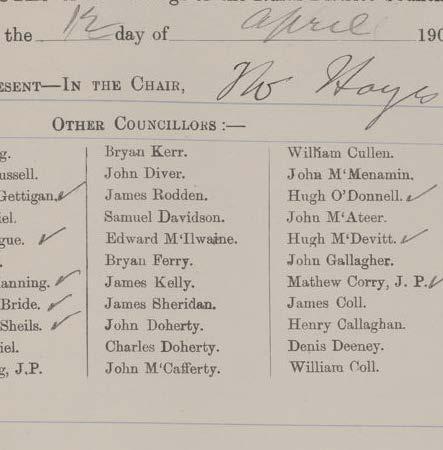 the 12 day of April 190
ESENT—IN THE CHAIR, Tho Hayes
OTHER COUNCILLORS :—
g. Bryan Kerr. William Cullen.
ussell. John Diver. John M'Menamin.
Gettigan. James Rodden. Hugh O'Donnell.
iel. Samuel Davidson. John M'Ateer.
gue. Edward M'Ilwaine. Hugh M'Devitt.
Bryan Ferry. John Gallagher.
anning. James Kelly. Mathew Corry, J. P.
Bride. James Sheridan. James Coll.
Sheils. John Doherty. Henry Callaghan.
iel. Charles Doherty. Denis Deeney.
g, J.P. John M'Cafferty. William Coll.